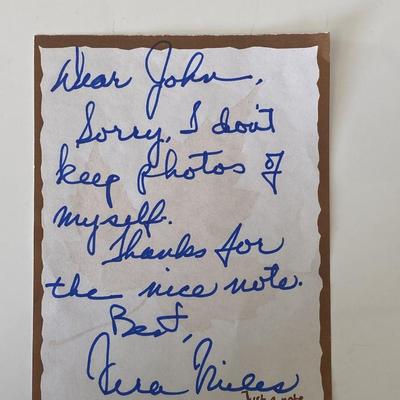 Dear John,
Sorry, I don't
keep photos of
myself.
Thanks for
the nice note.
Best,
Vera Miles
Just a note